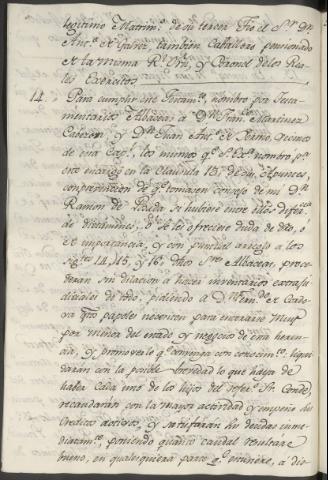 legitimo Matrim.º de su tercer Tio el S.or D.n
Ant.º de Galvez, tambien Caballero pensionado
de la misma R.l Orn, y Coronel de los Rea-
les Exercitos.
14. Para cumplir este Testam.to, nombro por Testa-
mentarios Albaceas á D.n Fran.co Martinez
Cabezon y D.n Juan Ant.º de Yermo, vecinos
de esta Cap.l, los mismos q.e S. Ex.a nombro p.a
este encargo en la Clausula 13.ª de sus Apuntes,
con prevencion de q.e tomasen consejo de mi D.n
Ramon de Posada si hubiere entre ellos difer.cia
de dictamenes, ó se les ofreciere duda de dro, o
de importancia, y con puntual arreglo a los
sig.tes 14, 15, y 16, dhos S.res Albaceas, proce-
deran sin dilacion á hacer inventarios extraju-
diciales de todo; pidiendo á D.n Fern.do de Cordo-
va q.tos papeles necesiten para enterarse muy
por menor del estado y negocios de esta heren-
cia, y promoverlo q.e convenga con conocim.to, liqui-
daran con la posible brevedad lo que haya de
haber cada uno de los hijos del refer.do S.r Conde,
recaudarán con la mayor actividad y empeño los
creditos activos, y satisfarán las deudas inme-
diatam.te, poniendo quanto caudal resultare
bueno, en qualesquiera parte q.e estuviere, á dis-